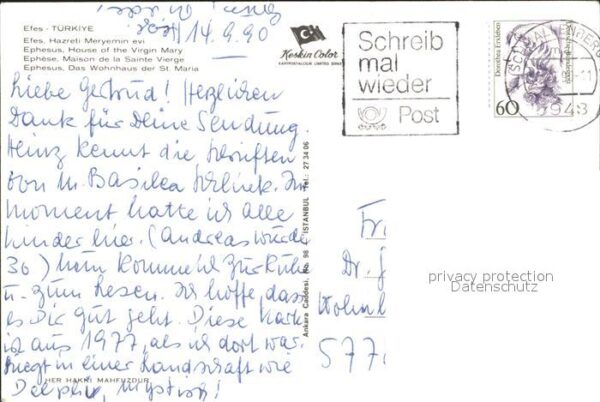 Efes - TÜRKİYE
Efes, Hazreti Meryemin evi
Ephesus, House of the Virgin Mary
Ephèse, Maison de la Sainte Vierge
Ephesus, Das Wohnhaus der St. Maria
14.9.90
Keskin Color
Schreib
mal
wieder
Post
Dorothea Erxleben
Deutsche Bundespost
60
Liebe Gertrud! Herzlichen
Dank für Deine Sendung.
Heinz kennt die Schriften
von M. Basilea Schlink. Im
Moment hatte ich alle
Kinder hier. (Andreas wurde
30) Nun komme ich zur Ruhe
u. zum Lesen. Ich hoffe, dass
es Dir gut geht. Diese Karte
ist aus 1977, als ich dort war.
liegt in einer Landschaft wie
Delphi, mystisch!
HER HAKKI MAHFUZDUR
Ankara Caddesi, No. 98 İSTANBUL Tel.: 27 34 06
Dr.
577
privacy protection
Datenschutz